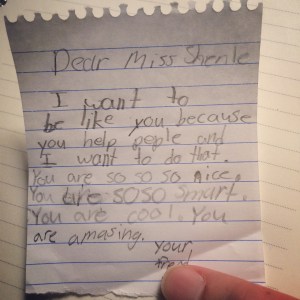 Dear Miss Shenle
I want to
be like you because
you help peple and
I want to do that.
You are so so so nice.
You are SOSO smart.
You are cool. You
are amasing.
Your
frend